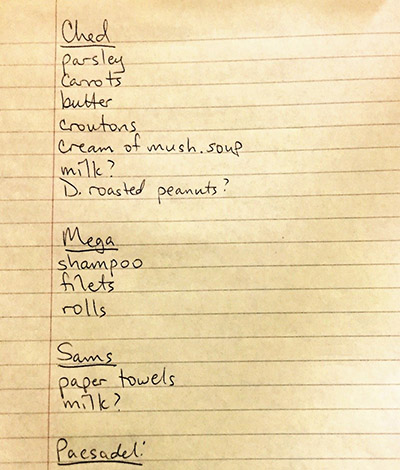 Ched
parsley
carrots
butter
croutons
cream of mush. soup
milk?
D. roasted peanuts?
Mega
shampoo
filets
rolls
Sams
paper towels
milk?
Paesadeli